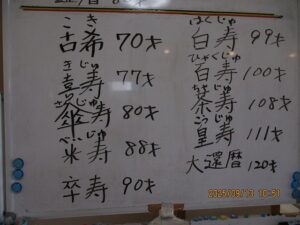 こ き
古希 70才
き じゅ
喜寿 77才
さん じゅ
傘寿 80才
べい じゅ
米寿 88才
卒寿 90才
はくじゅ
白寿 99才
ひゃくじゅ
百寿 100才
ちゃじゅ
茶寿 108才
こうじゅ
皇寿 111才
大還暦 120才
10:51